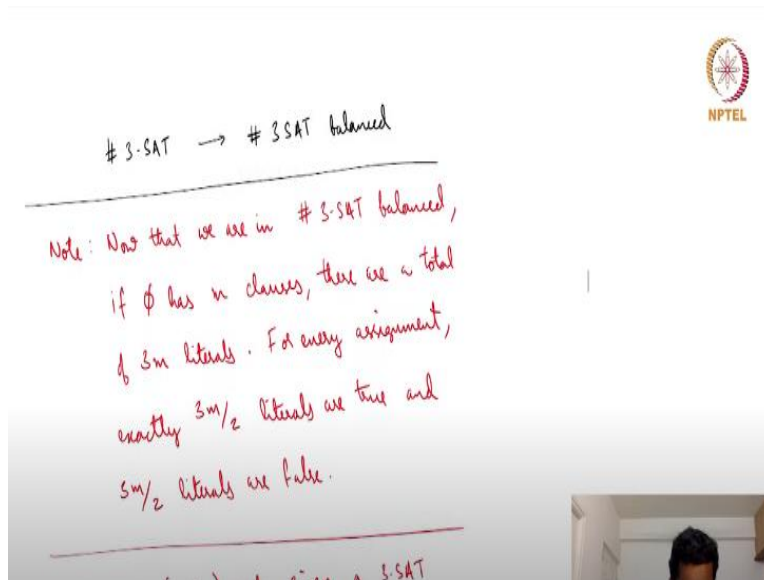 NPTEL
# 3-SAT → # 3SAT balanced
Note: Now that we are in # 3-SAT balanced,
if ϕ has m clauses, there are a total
of 3m literals. For every assignment,
exactly 3m/2 literals are true and
3m/2 literals are false.
3-SAT